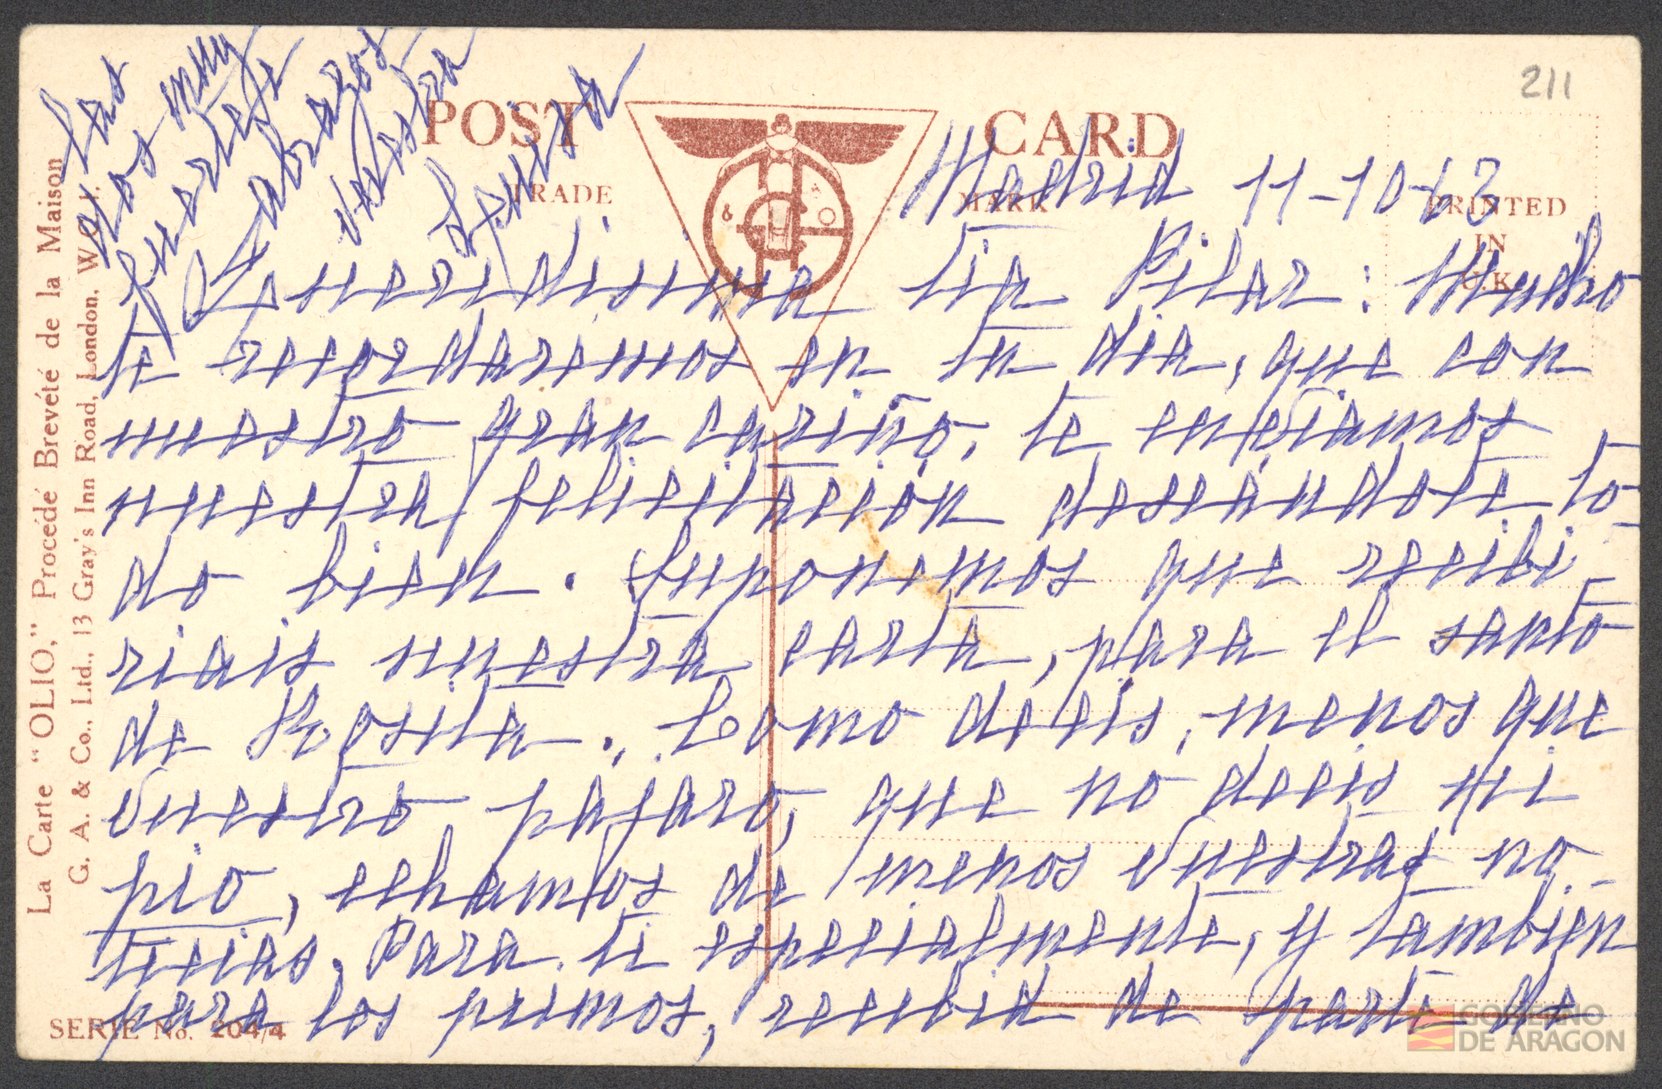 211
POST CARD
TRADE MARK
& A O
PRINTED
IN
U.K.
La Carte "OLIO," Procédé Breveté de la Maison
G. A. & Co., Ltd., 13 Gray's Inn Road, London, W.C.1.
SERIE No. 204/4
Madrid 11-10-63
Queridisima tia Pilar: Mucho
te recordaremos en tu dia, que con
nuestro gran cariño, te enviamos
nuestra felicitación deseándote to-
do bien. Suponemos que recibi-
riais nuestra carta, para el santo
de Rosita. Como decis, menos que
vuestro pajaro, que no decis ni
pio, echamos de menos vuestras no-
ticias. Para ti especialmente, y tambien
para los primos, recibid de parte de
los
muy
fuertes
abrazos
vuestra
Luisa
GOBIERNO
DE ARAGON